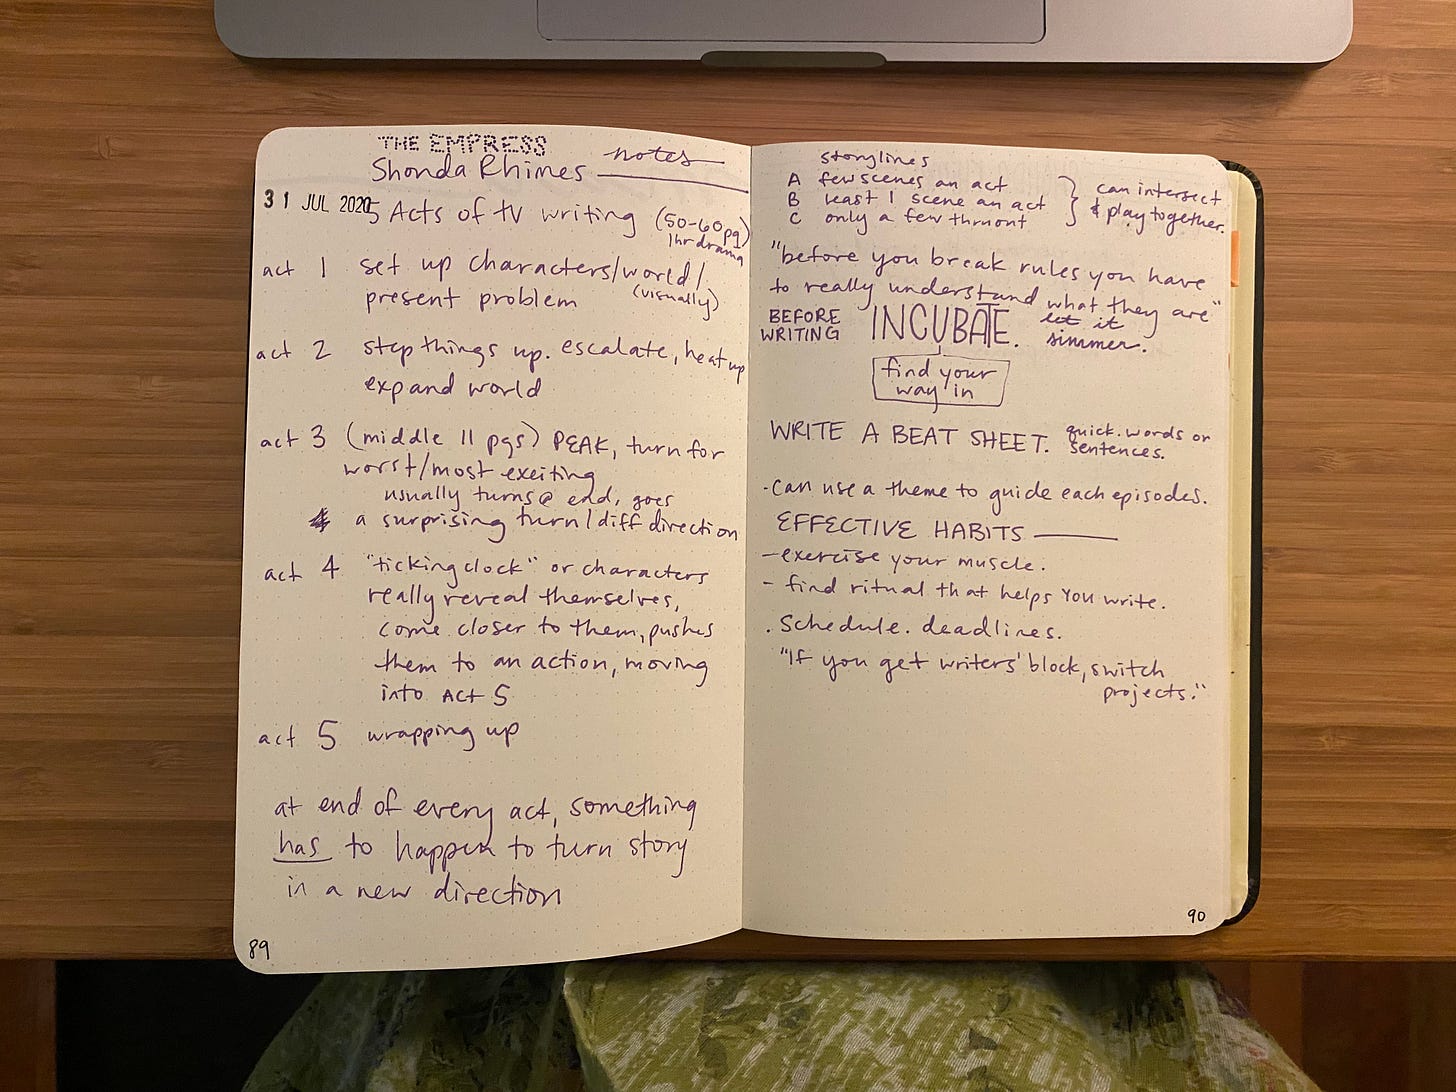 THE EMPRESS
Shonda Rhimes notes
31 JUL 2020
5 Acts of tv writing (50-60pg)
1hr drama
act 1 set up characters/world/
present problem (visually)
act 2 step things up. escalate, heat up
expand world
act 3 (middle 11 pgs) PEAK, turn for
worst/most exciting
usually turns @ end, goes
a surprising turn/diff direction
act 4 "ticking clock" or characters
really reveal themselves,
come closer to them, pushes
them to an action, moving
into Act 5
act 5 wrapping up
at end of every act, something
has to happen to turn story
in a new direction
89
storylines
A few scenes an act
B least 1 scene an act
C only a few thruout
can intersect
& play together.
"before you break rules you have
to really understand what they are"
BEFORE
WRITING
INCUBATE.
let it
simmer.
find your
way in
WRITE A BEAT SHEET. quick. words or
sentences.
-Can use a theme to guide each episodes.
EFFECTIVE HABITS
-exercise your muscle.
- find ritual that helps YOU write.
. Schedule. deadlines.
"If you get writers' block, switch
projects."
90